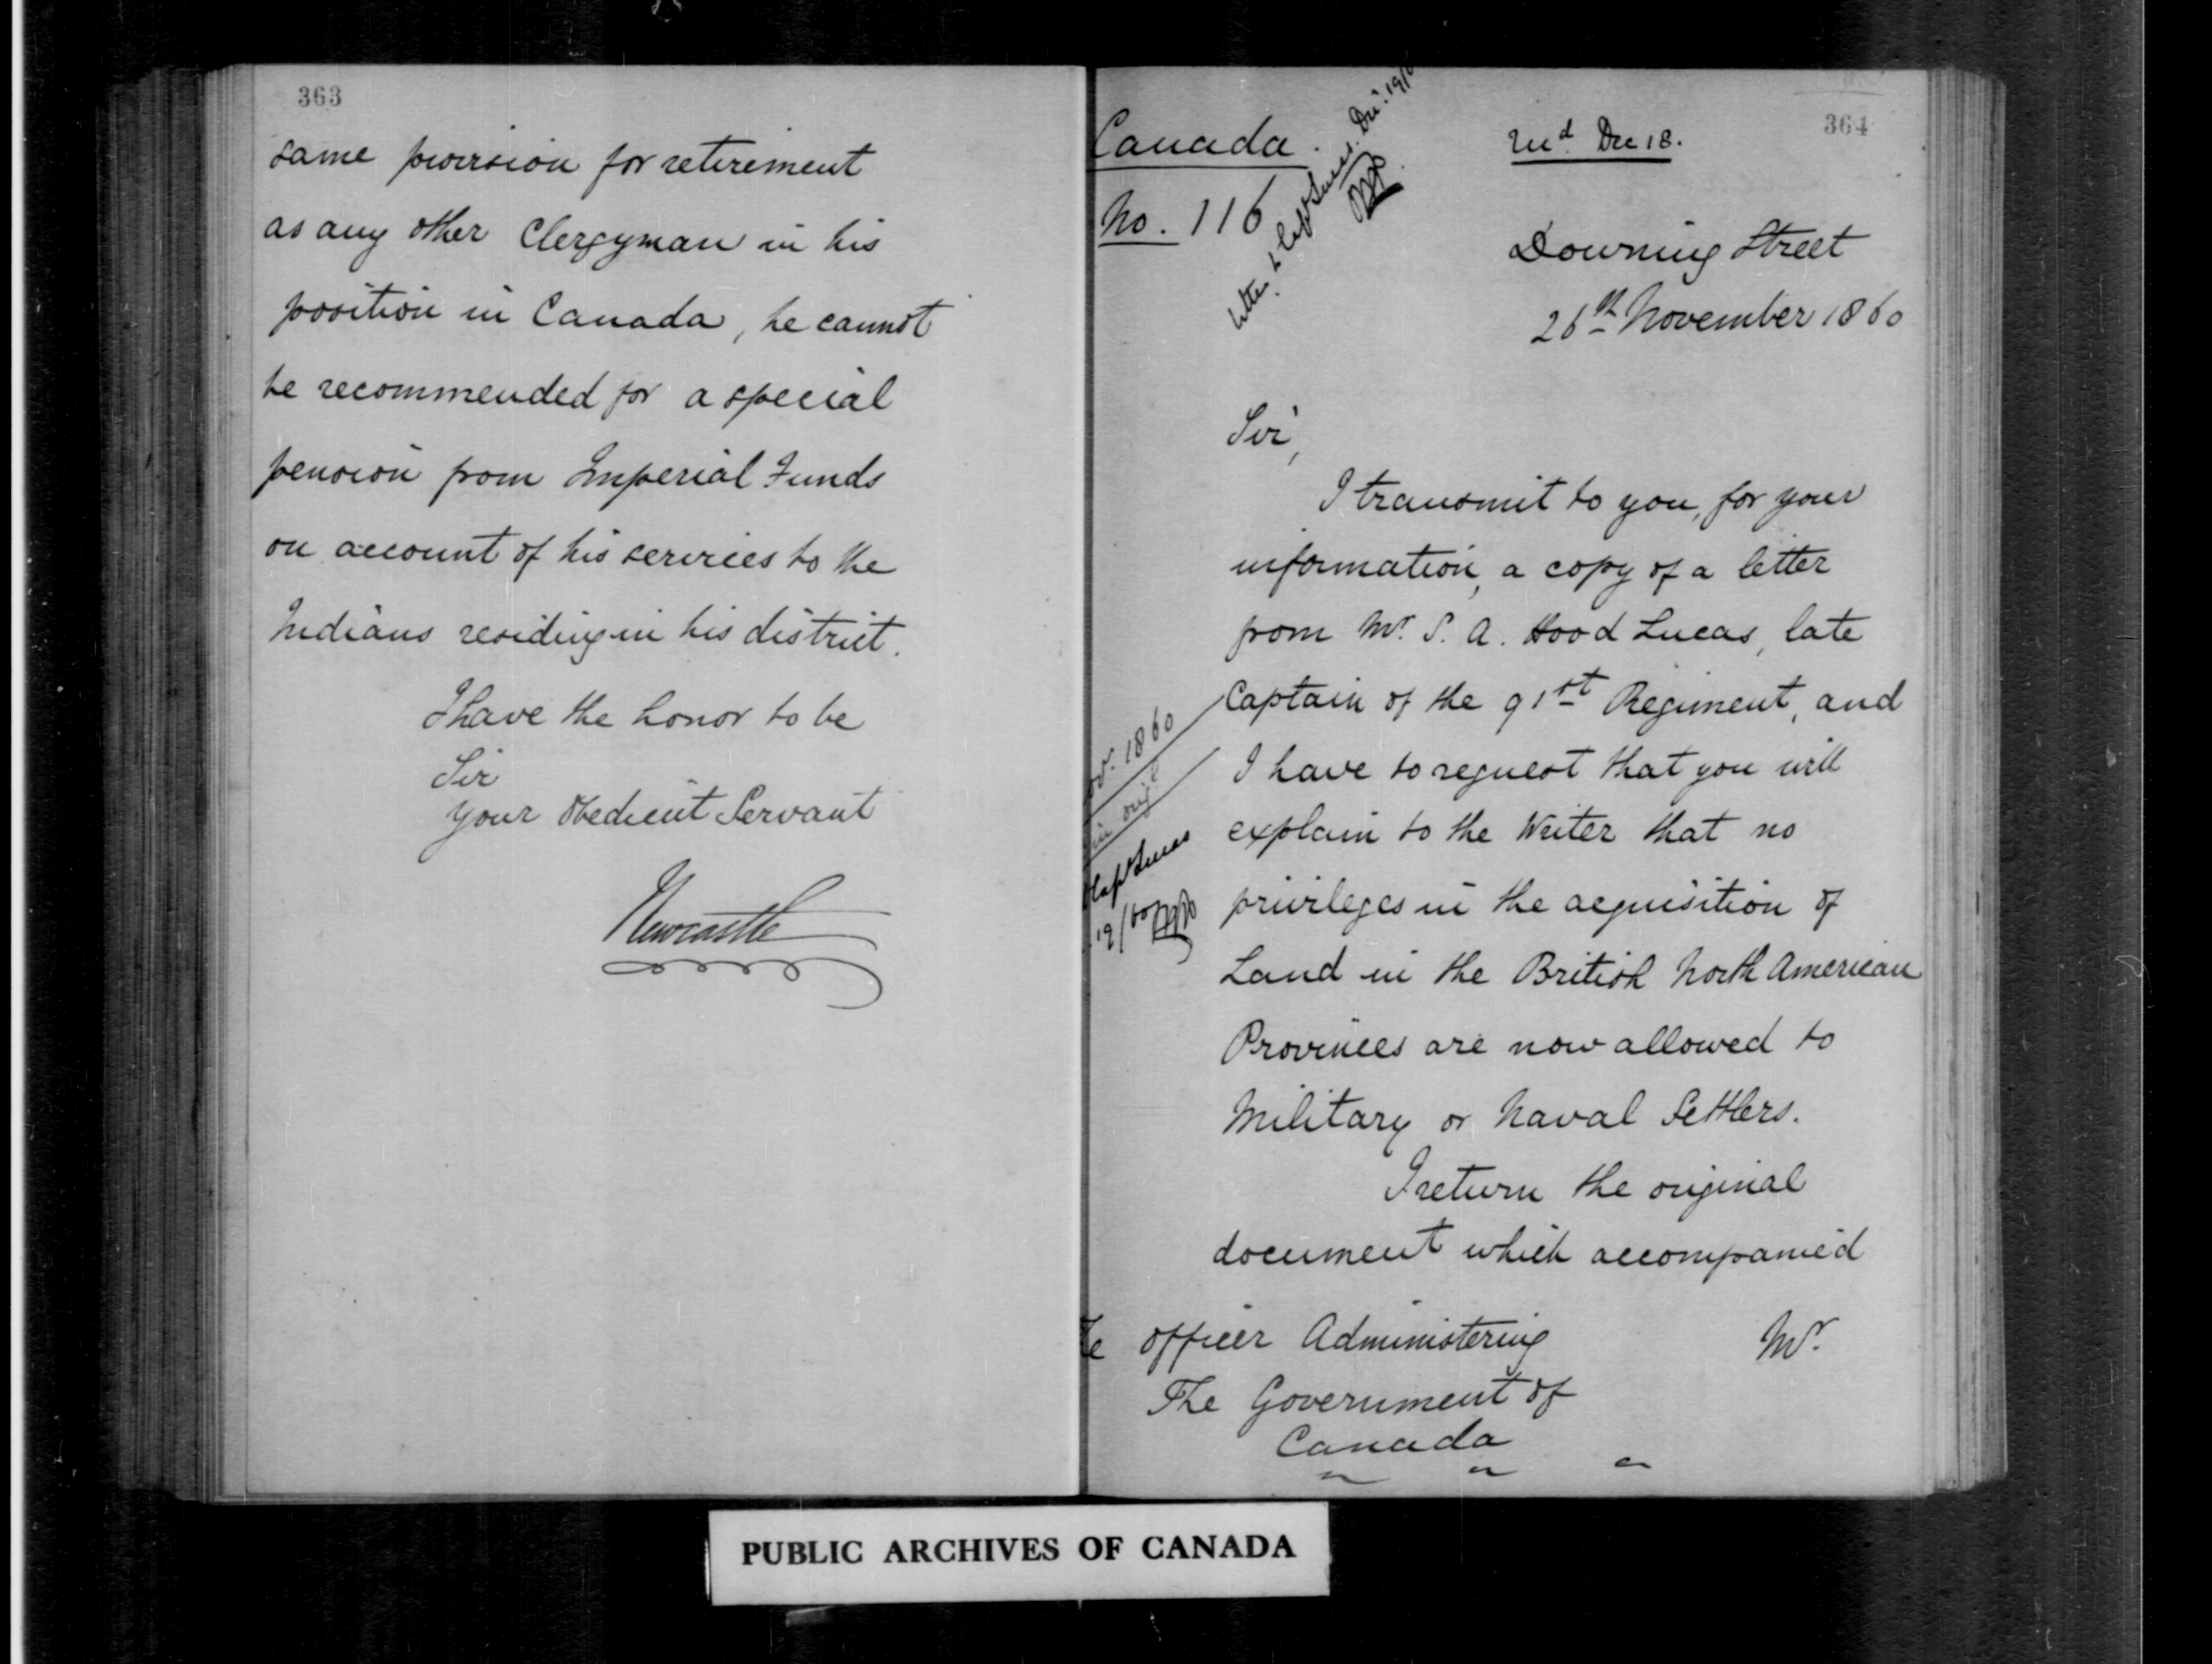 363
same provision for retirement
as any other Clergyman in his
position in Canada, he cannot
be recommended for a special
pension from Imperial Funds
on account of his services to the
Indians residing in his district.
I have the honor to be
Sir
your obedient Servant
Newcastle
364
Canada.
No. 116
Dec 18.
Letter to Capt Lucas. Dec. 19/6
Downing Street
26th November 1860
Sir,
I transmit to you, for your
information, a copy of a letter
from Mr. S. A. Hood Lucas, late
Captain of the 91st Regiment, and
I have to request that you will
explain to the Writer that no
privileges in the acquisition of
Land in the British North American
Provinces are now allowed to
Military or Naval Settlers.
I return the original
document which accompanied
ov. 1860
in orig
Capt Lucas
19/60
Officer Administering
The Government of
Canada
Mr.
PUBLIC ARCHIVES OF CANADA